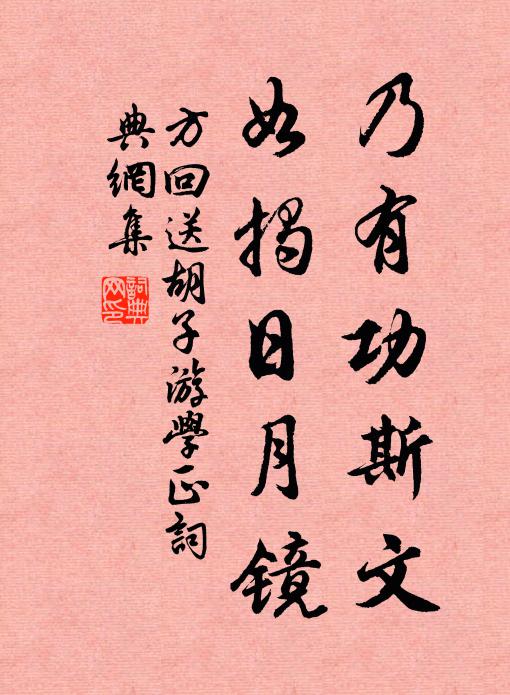 乃有功斯文
如揭日月镜
方回送胡子游学正词
典網集
詞典網印